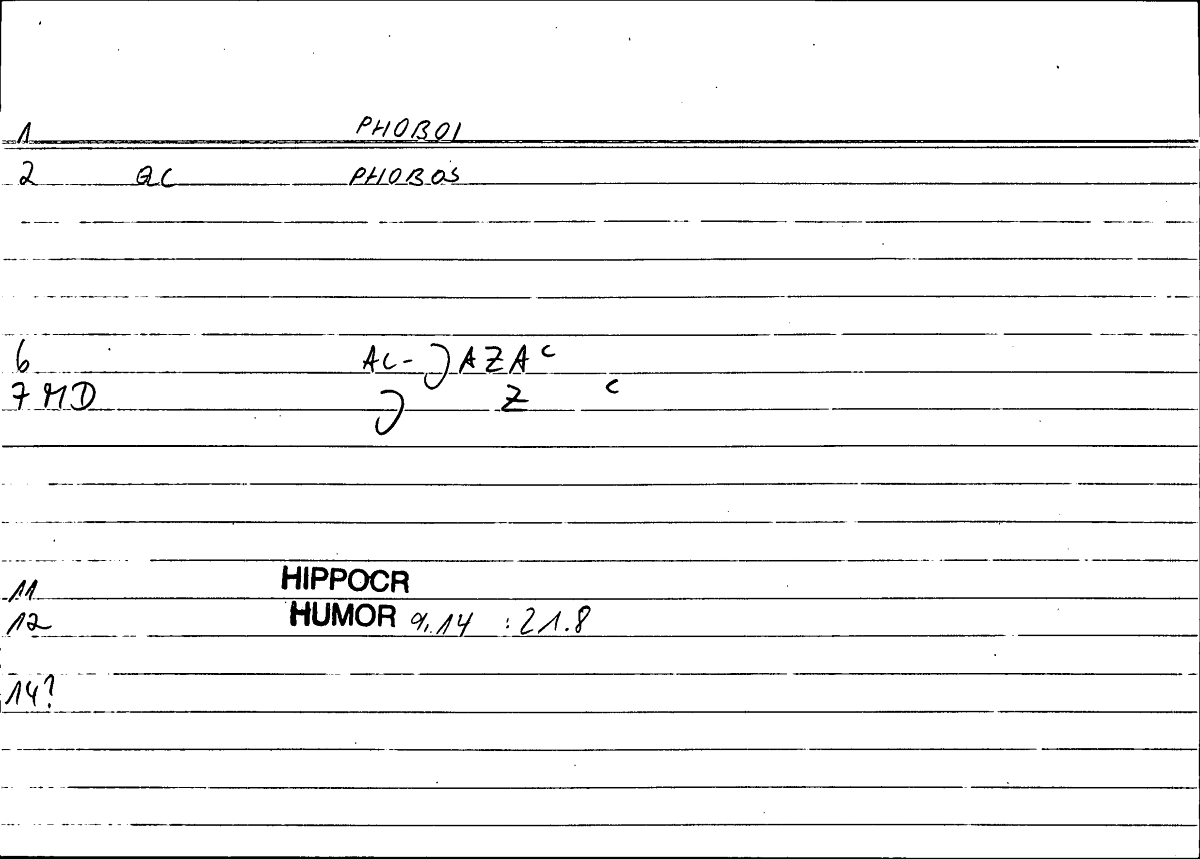 1 PHOBOI
2 GC PHOBOS
6 AL-JAZAʿ
7 MD J Z ʿ
11 HIPPOCR
12 HUMOR 9.14 :21.8
14?